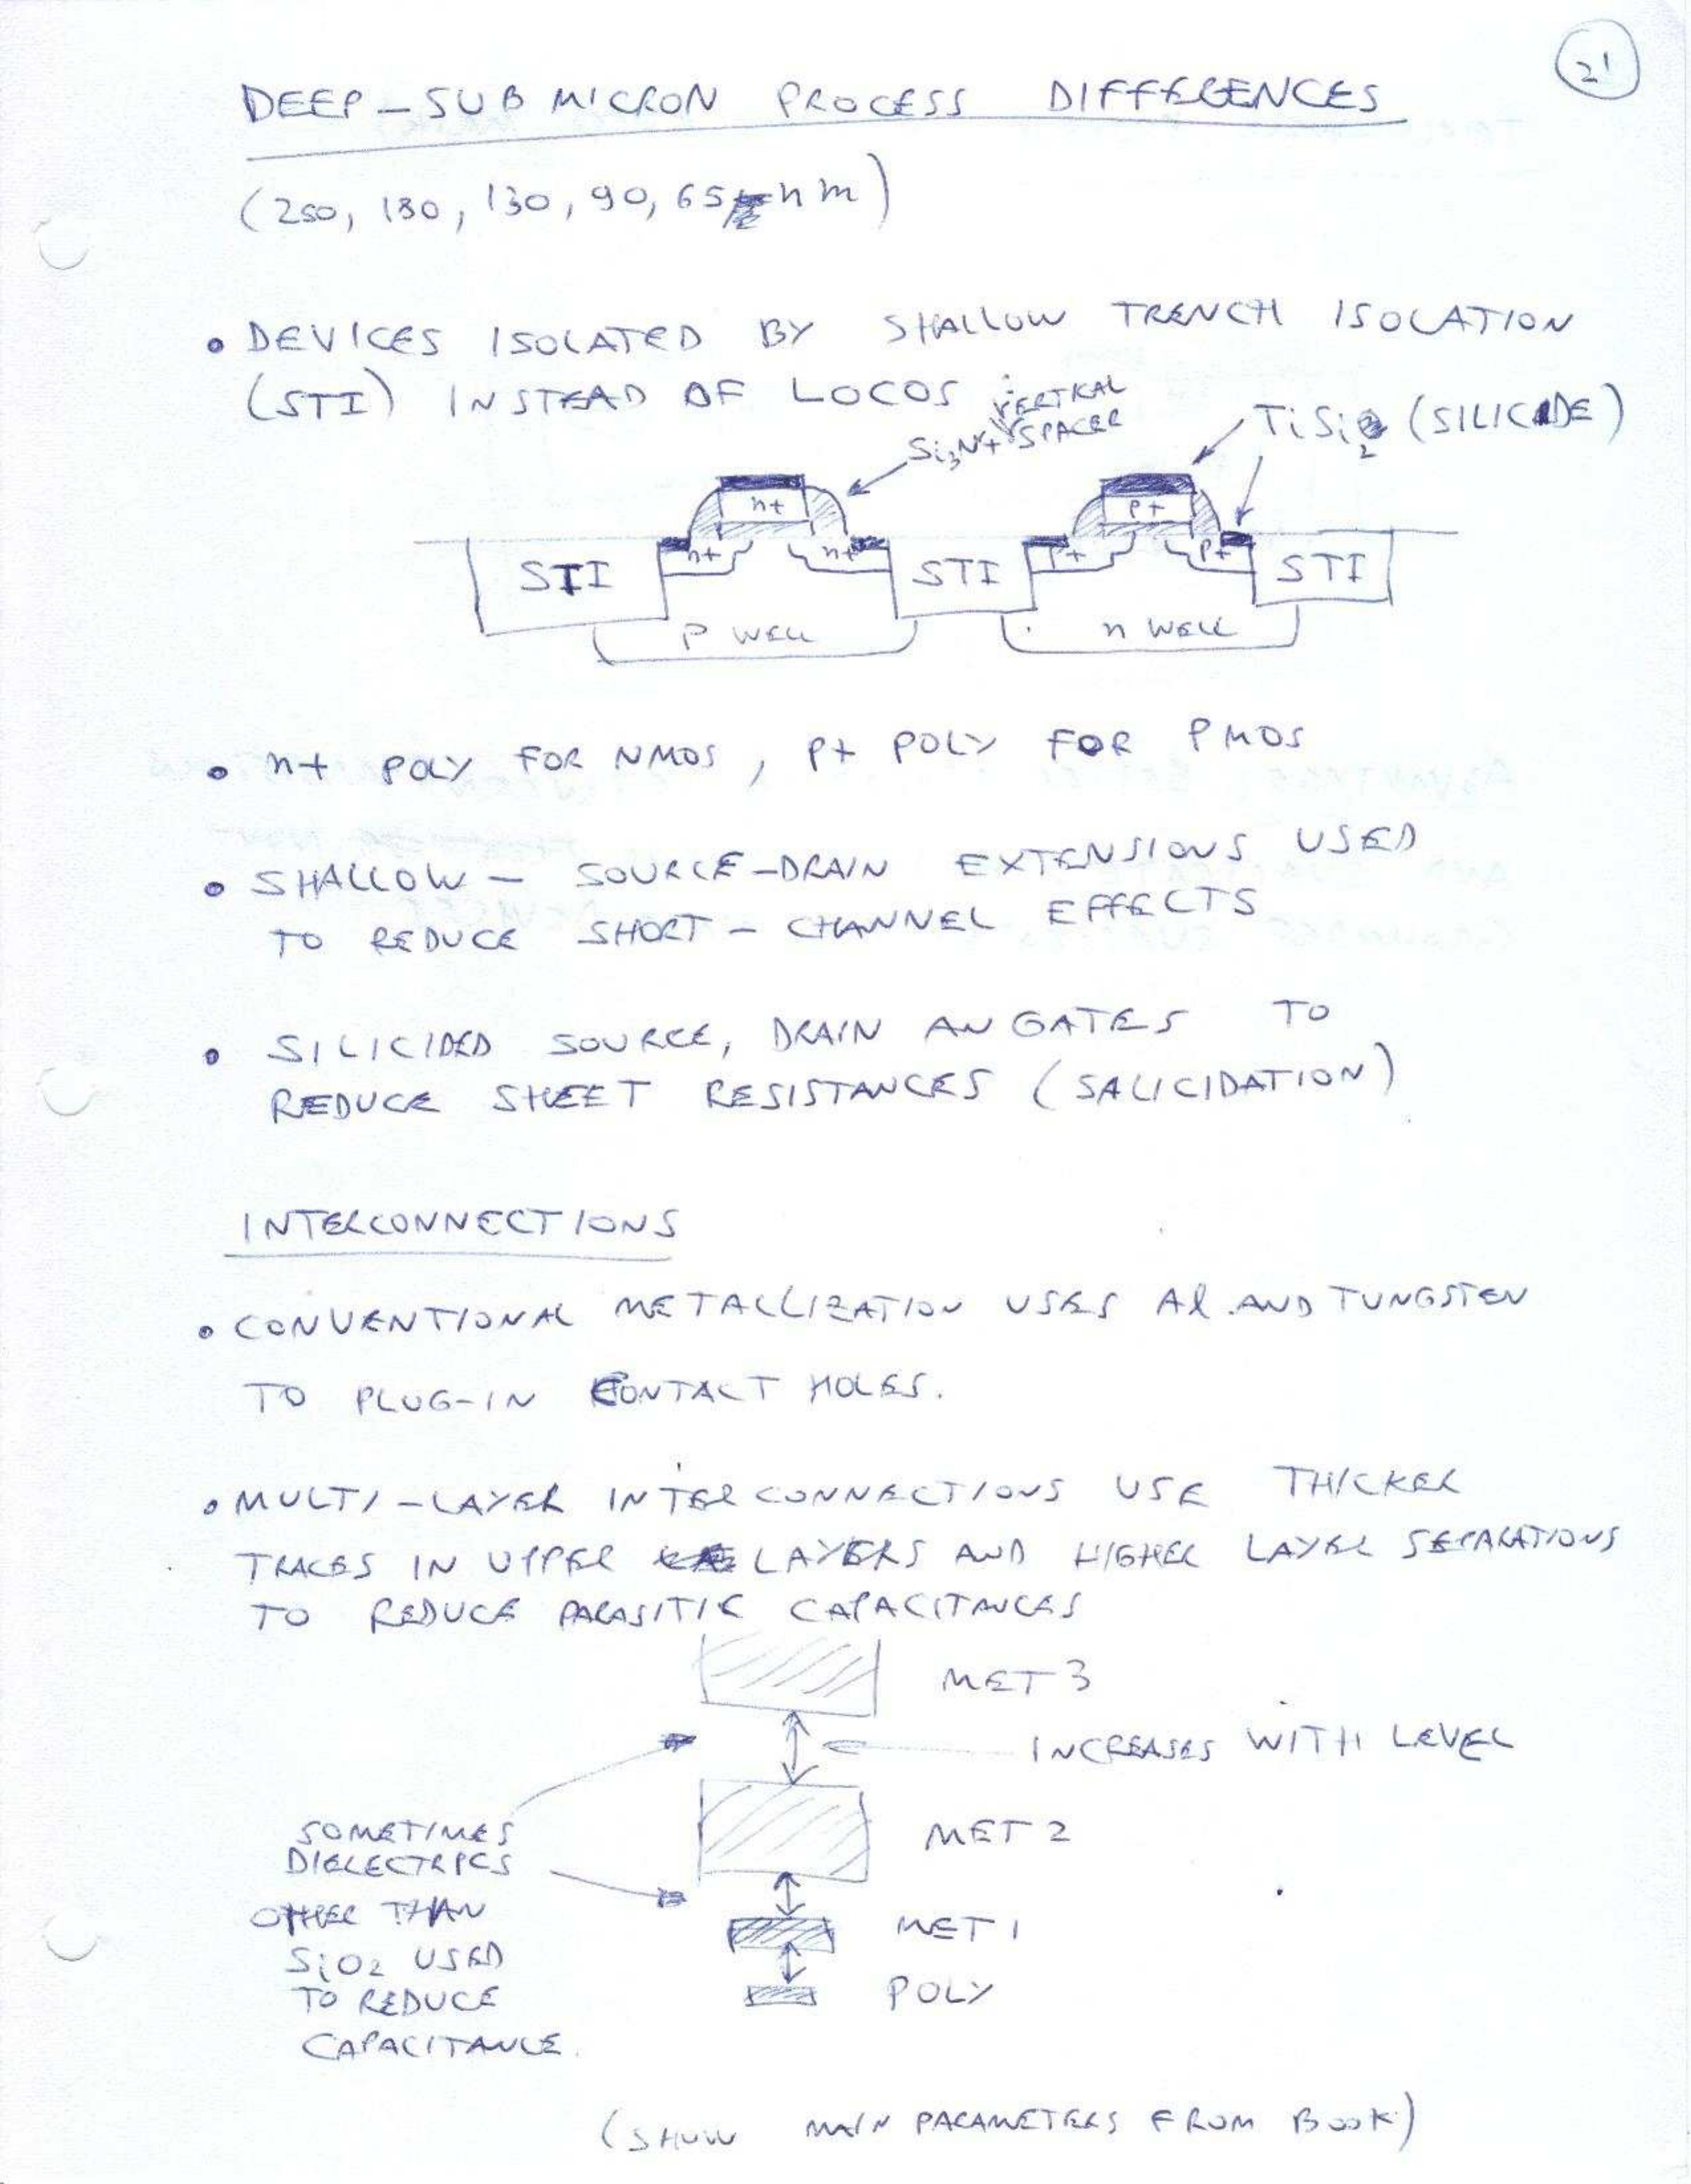 21
DEEP-SUBMICRON PROCESS DIFFERENCES
(250, 180, 130, 90, 65 nm)
• DEVICES ISOLATED BY SHALLOW TRENCH ISOLATION
(STI) INSTEAD OF LOCOS
VERTICAL
Si3N4 SPACER
TiSi2 (SILICIDE)
n+ p+
n+ n+ p+ p+
STI STI STI
P WELL n WELL
• n+ POLY FOR NMOS, P+ POLY FOR PMOS
• SHALLOW - SOURCE-DRAIN EXTENSIONS USED
TO REDUCE SHORT-CHANNEL EFFECTS
• SILICIDED SOURCE, DRAIN AN GATES TO
REDUCE SHEET RESISTANCES (SALICIDATION)
INTERCONNECTIONS
• CONVENTIONAL METALLIZATION USES Al AND TUNGSTEN
TO PLUG-IN CONTACT HOLES.
• MULTI-LAYER INTERCONNECTIONS USE THICKER
TRACES IN UPPER LAYERS AND HIGHER LAYER SEPARATIONS
TO REDUCE PARASITIC CAPACITANCES
MET 3
INCREASES WITH LEVEL
MET 2
SOMETIMES
DIELECTRICS
OTHER THAN
SiO2 USED
TO REDUCE
CAPACITANCE.
MET 1
POLY
(SHOW MAIN PARAMETERS FROM BOOK)